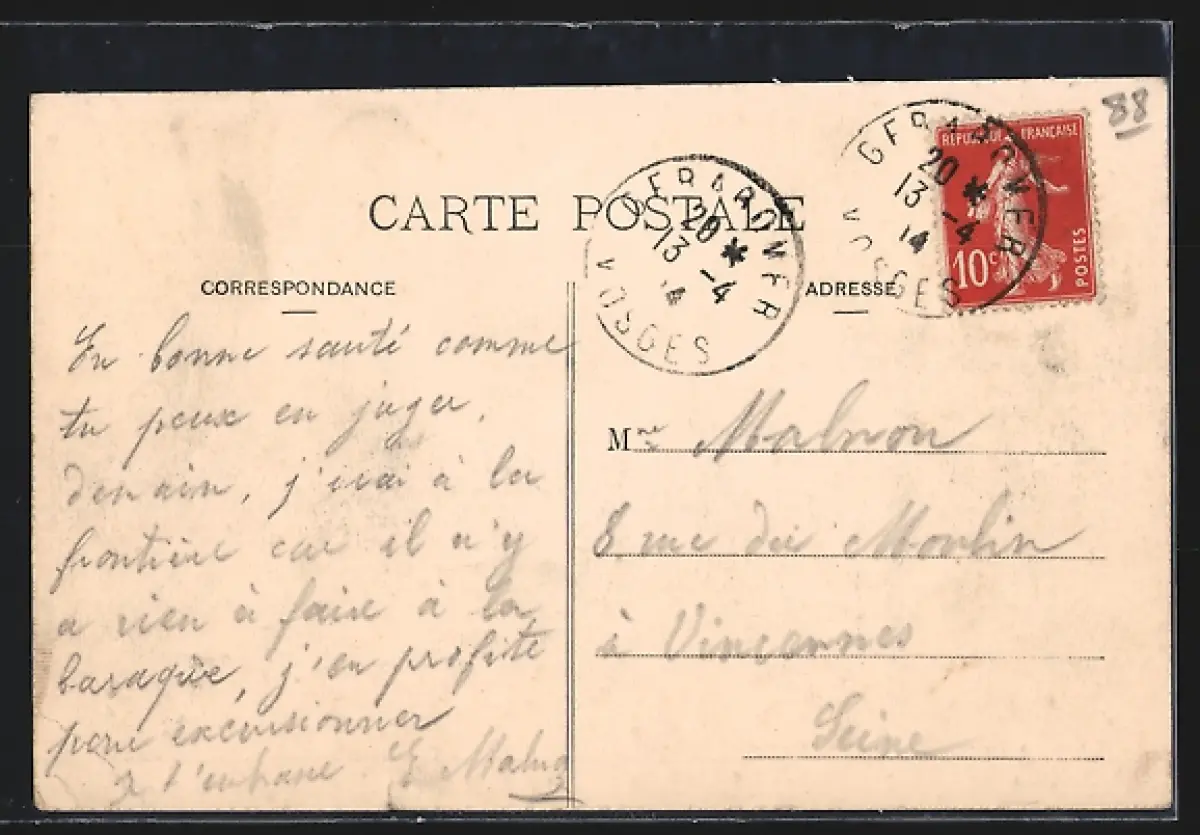 88
REPUBLIQUE FRANÇAISE
10c
POSTES
GERARDMER
20 *
13 -4
14
VOSGES
GERARDMER
20 *
13 -4
14
VOSGES
CARTE POSTALE
CORRESPONDANCE
En bonne santé comme
tu peux en juger,
demain, j'irai à la
frontière car il n'y
a rien à faire à la
baraque, j'en profite
pour excursionner
Je t'embrasse E. Malnou
ADRESSE
Mme Malnou
8 rue du Moulin
à Vincennes
Seine